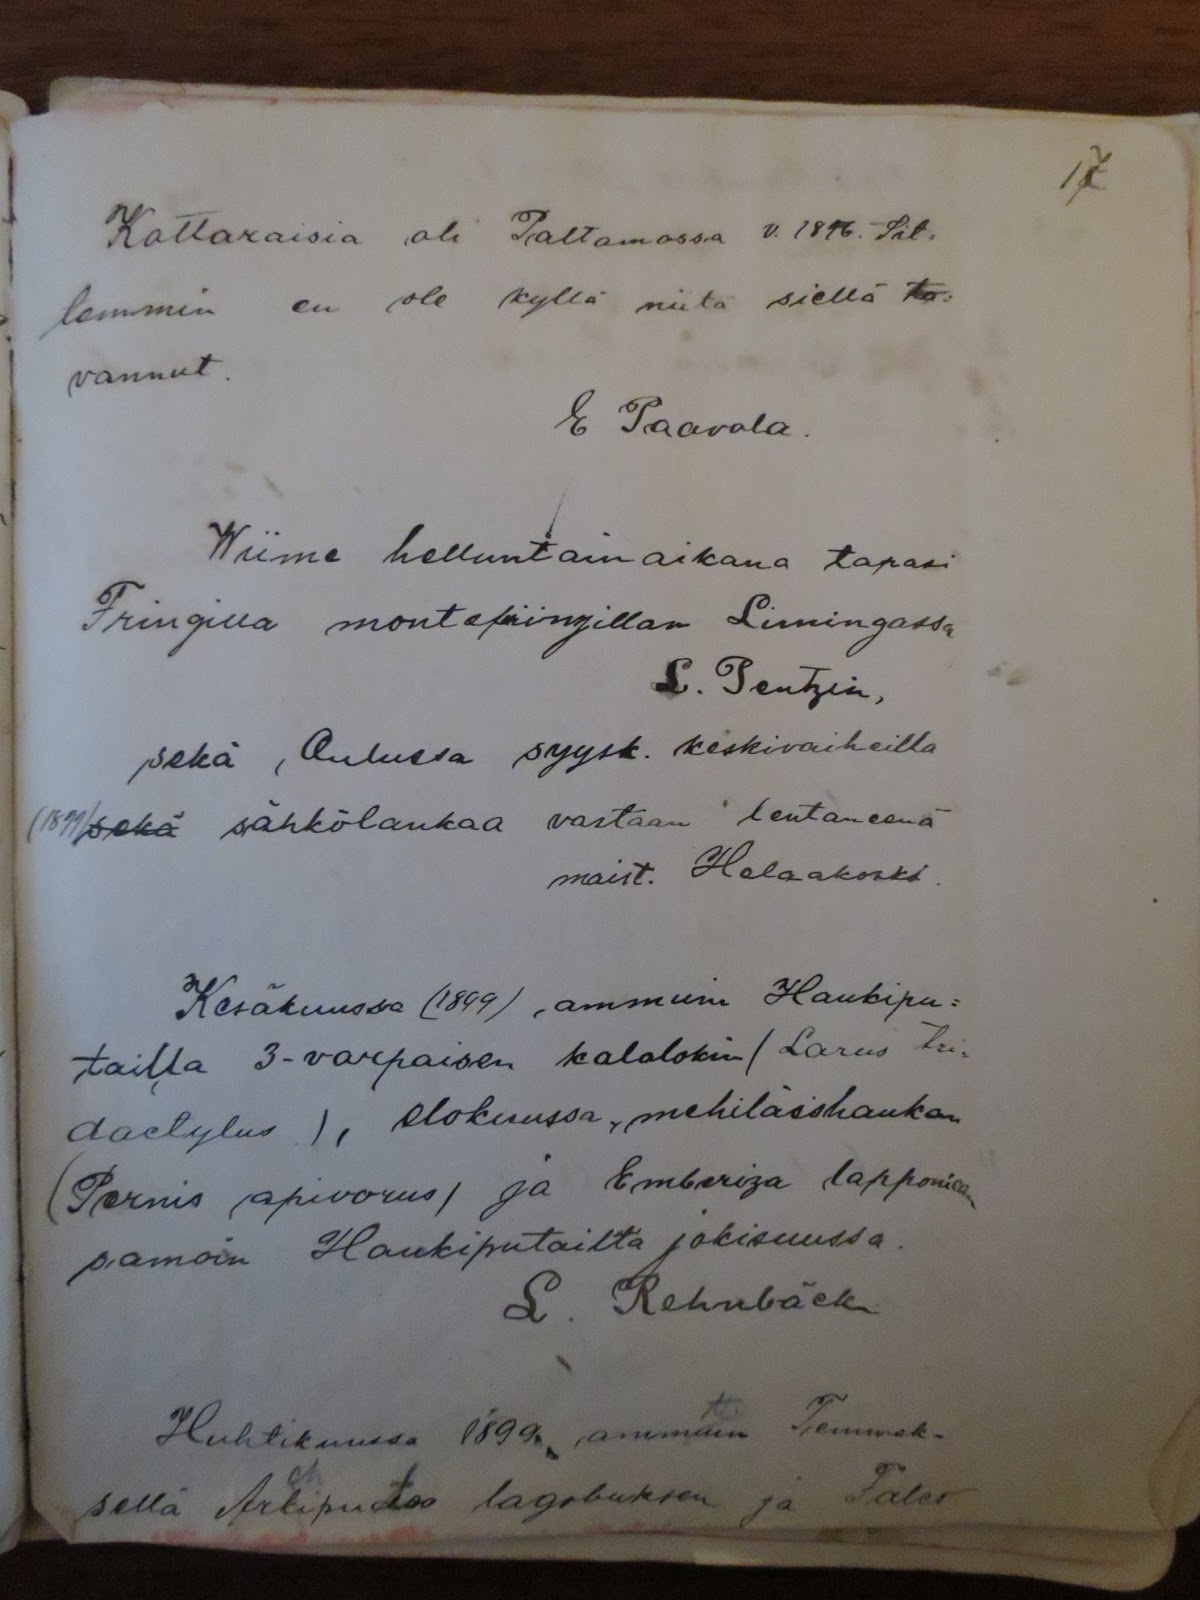 17
Kottaraisia oli Paltamossa v. 1896. Sit-
lemmin en ole kyllä niitä siellä ta-
vannut.
E Paavola.
Wiime helluntainaikana tapasi
Fringilla montefringillan Limingassa
L. Pentzin,
sekä, Oulussa syysk. keskivaiheilla
(1899) sekä sähkölankaa vastaan lentäneenä
maist. Helaakoski.
Kesäkuussa (1899), ammuin Haukipu-
tailla 3-varpaisen kalalokin (Larus tri-
dactylus), elokuussa, mehiläishaukan
(Pernis apivorus) ja Emberiza lapponican
samoin Haukiputailta jokisuussa.
L. Rehnbäck
Huhtikuussa 1899 ammuin Temmek-
sellä lagobuksen ja Falco